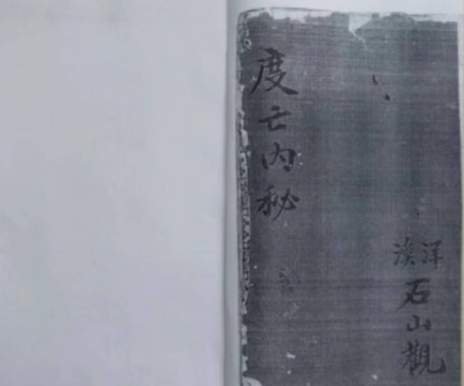 度亡内秘
洋溪
石山觀